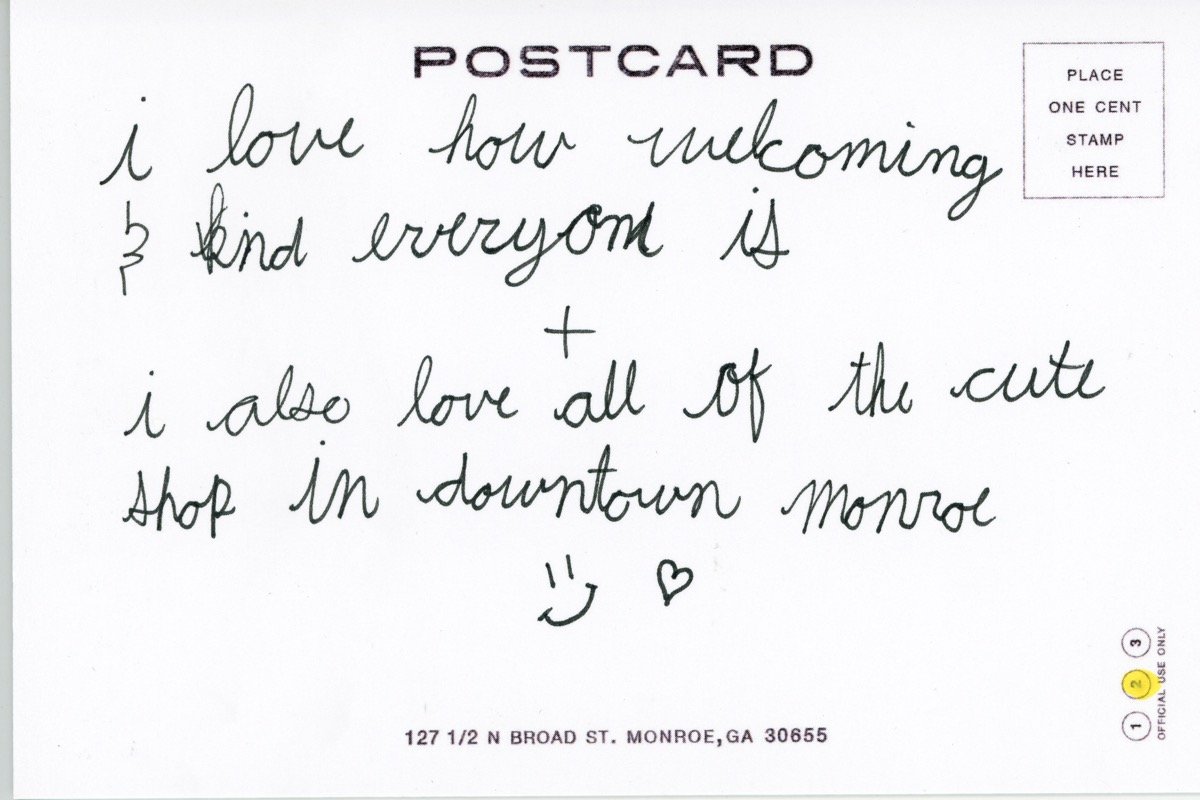 POSTCARD
PLACE
ONE CENT
STAMP
HERE
i love how welcoming
& kind everyone is
+
i also love all of the cute
shop in downtown monroe
127 1/2 N BROAD ST. MONROE, GA 30655
1 2 3
OFFICIAL USE ONLY